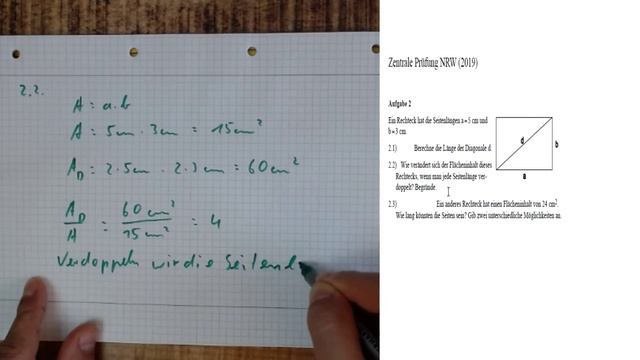 2.2.
A = a.b
A = 5cm . 3cm = 15cm²
A_D = 2.5cm . 2.3cm = 60cm²
A_D / A = 60cm² / 15cm² = 4
Verdoppeln wir die Seiten
Zentrale Prüfung NRW (2019)
Aufgabe 2
Ein Rechteck hat die Seitenlängen a = 5 cm und
b = 3 cm.
2.1) Berechne die Länge der Diagonale d.
2.2) Wie verändert sich der Flächeninhalt dieses
Rechtecks, wenn man jede Seitenlänge ver-
doppelt? Begründe.
2.3) Ein anderes Rechteck hat einen Flächeninhalt von 24 cm².
Wie lang könnten die Seiten sein? Gib zwei unterschiedliche Möglichkeiten an.
d
b
a